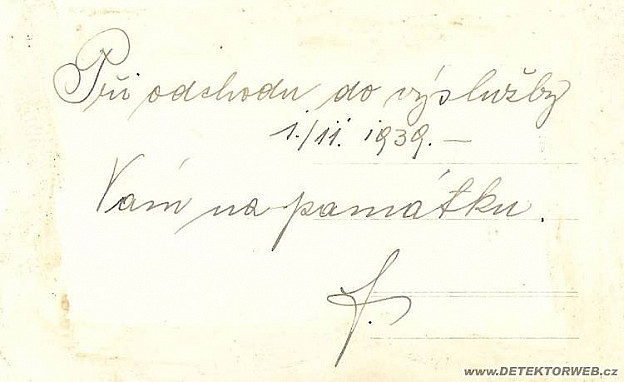 Při odchodu do výslužby
1./11. 1939. —
Vám na památku.
f.
www.DETEKTORWEB.cz